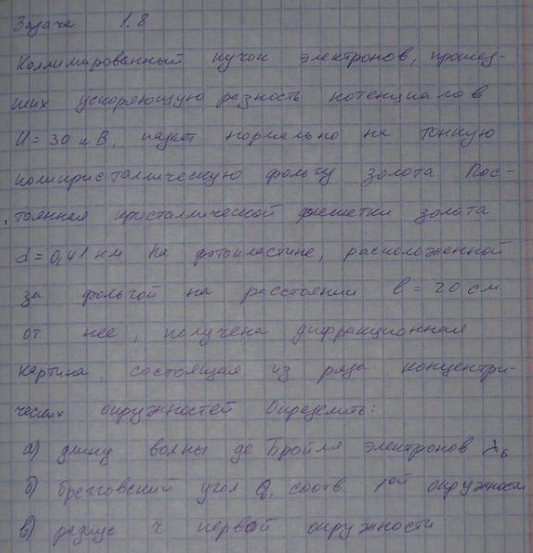 Задача 1.8
Коллимированный пучок электронов, прошед-
ших ускоряющую разность потенциалов
U = 30 кВ, падает нормально на тонкую
поликристаллическую фольгу золота Пос-
тоянная кристаллической решетки золота
d = 0,41 нм На фотопластине, расположенной
за фольгой на расстоянии l = 20 см
от нее, получена дифракционная
картина, состоящая из ряда концентри-
ческих окружностей Определить:
а) длину волны де Бройля электронов λ_Б
б) брегговский угол θ, соотв 1ой окружности
в) радиус r первой окружности